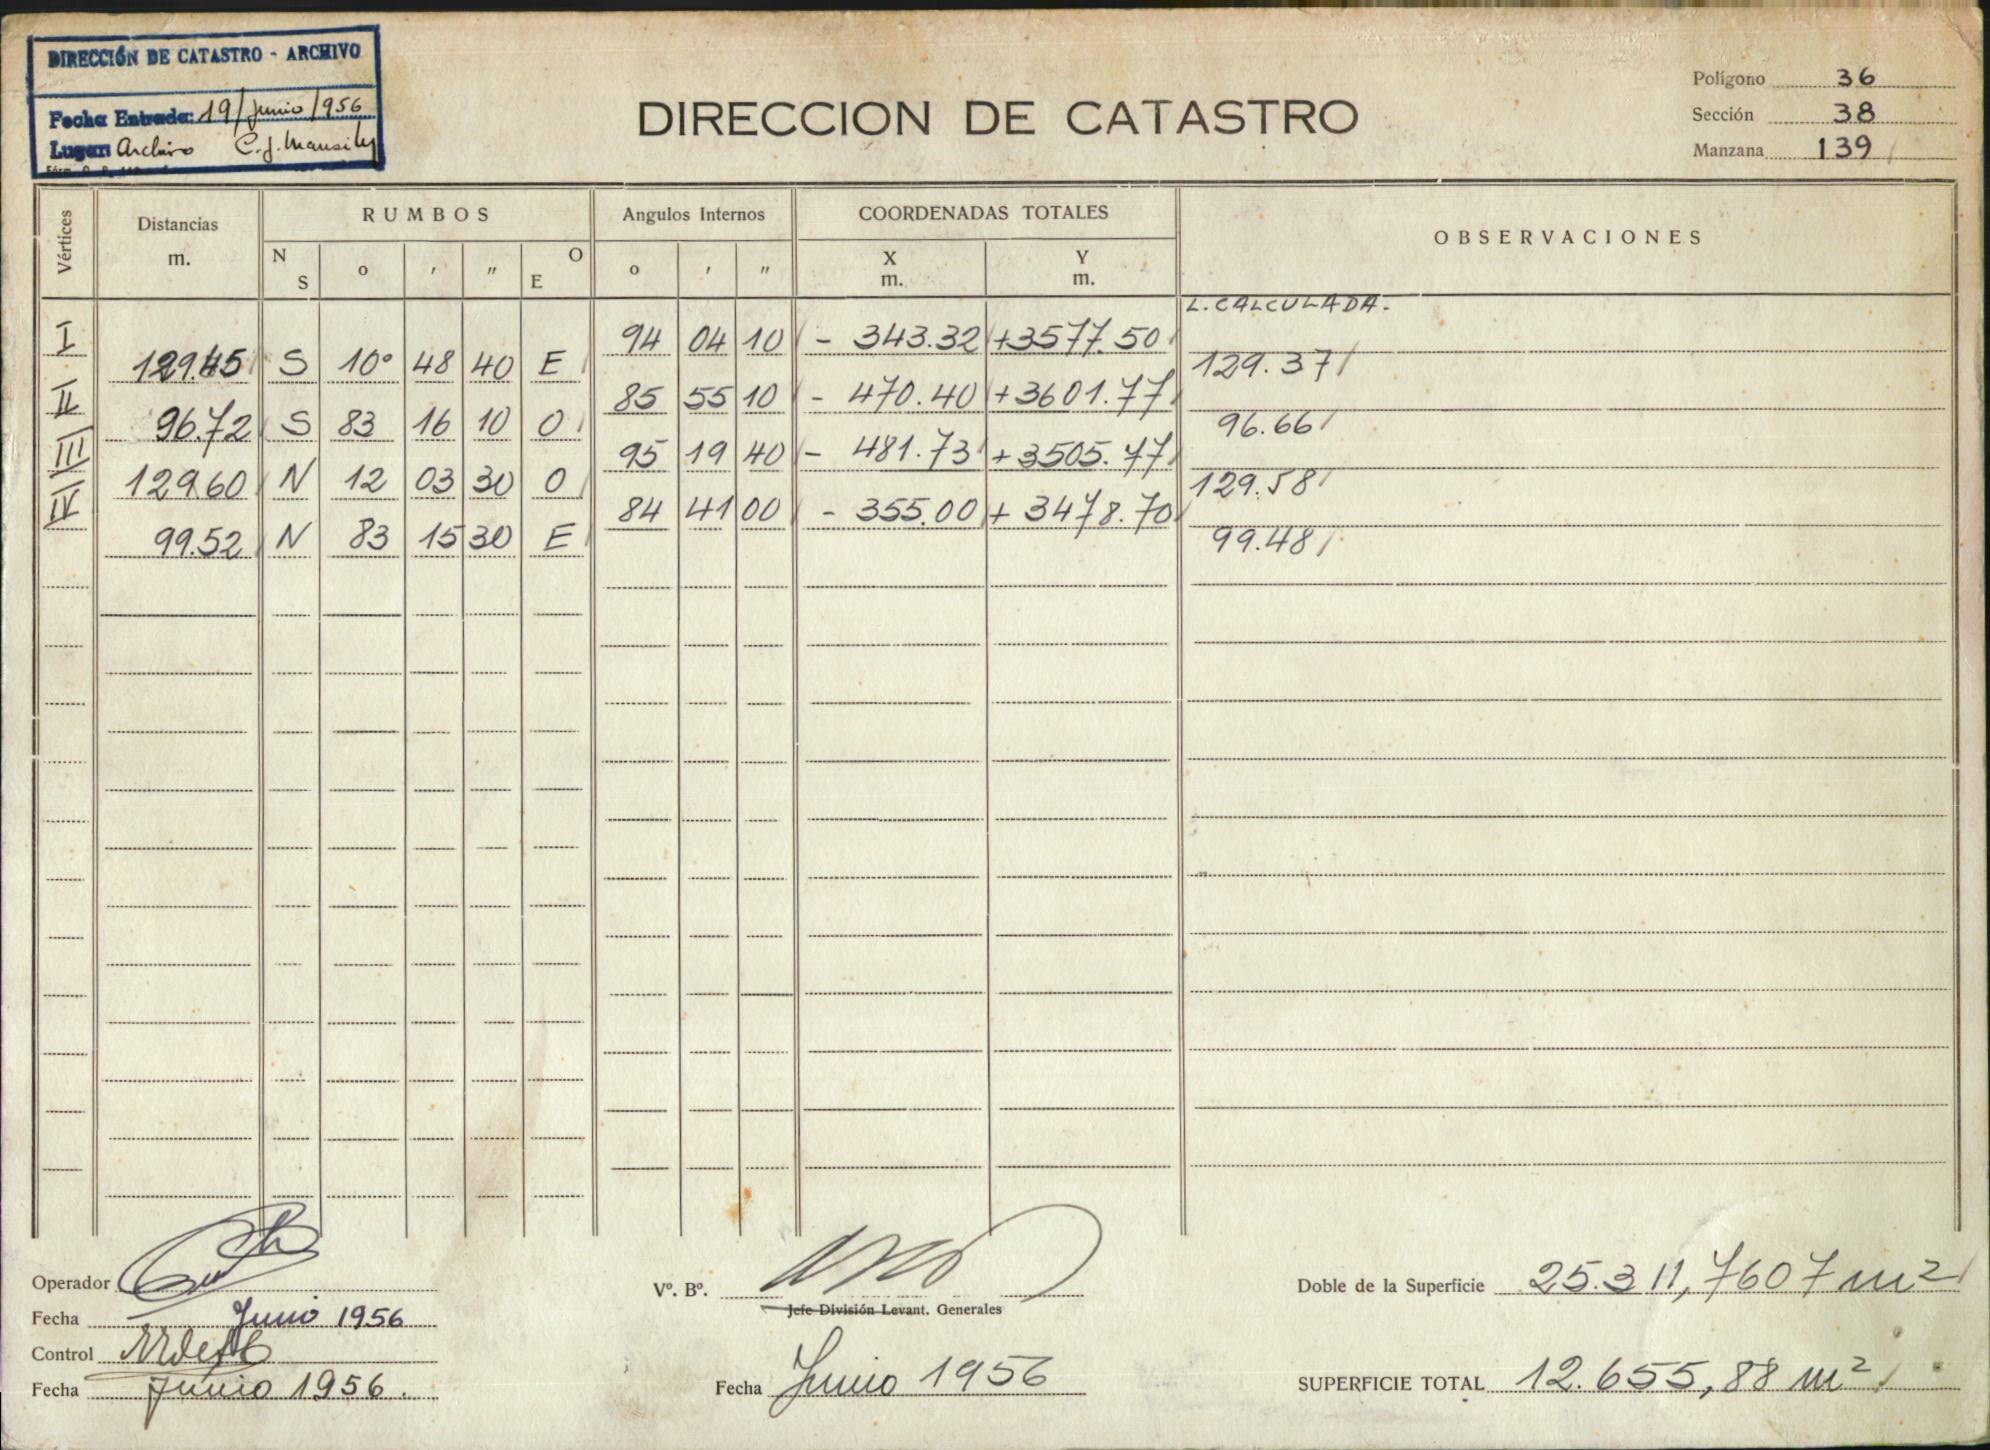 DIRECCIÓN DE CATASTRO - ARCHIVO
Fecha Entrada: 19/Junio/956
Lugar: Archivo C.J. Mansilla
DIRECCION DE CATASTRO
Polígono 36
Sección 38
Manzana 139
Vértices Distancias m. RUMBOS Angulos Internos COORDENADAS TOTALES OBSERVACIONES
N S o ′ ″ O E o ′ ″ X m. Y m.
L. CALCULADA.
I 94 04 10 - 343.32 +3577.50
129.45 S 10° 48 40 E 129.37
II 85 55 10 - 470.40 +3601.77
96.72 S 83 16 10 O 96.66
III 95 19 40 - 481.73 +3505.77
129.60 N 12 03 30 O 129.58
IV 84 41 00 - 355.00 + 3478.70
99.52 N 83 15 30 E 99.48
Operador
Fecha Junio 1956
Control
Fecha Junio 1956.
Vº. Bº.
Jefe División Levant. Generales
Fecha Junio 1956
Doble de la Superficie 25.311,7607 m²
SUPERFICIE TOTAL 12.655,88 m²